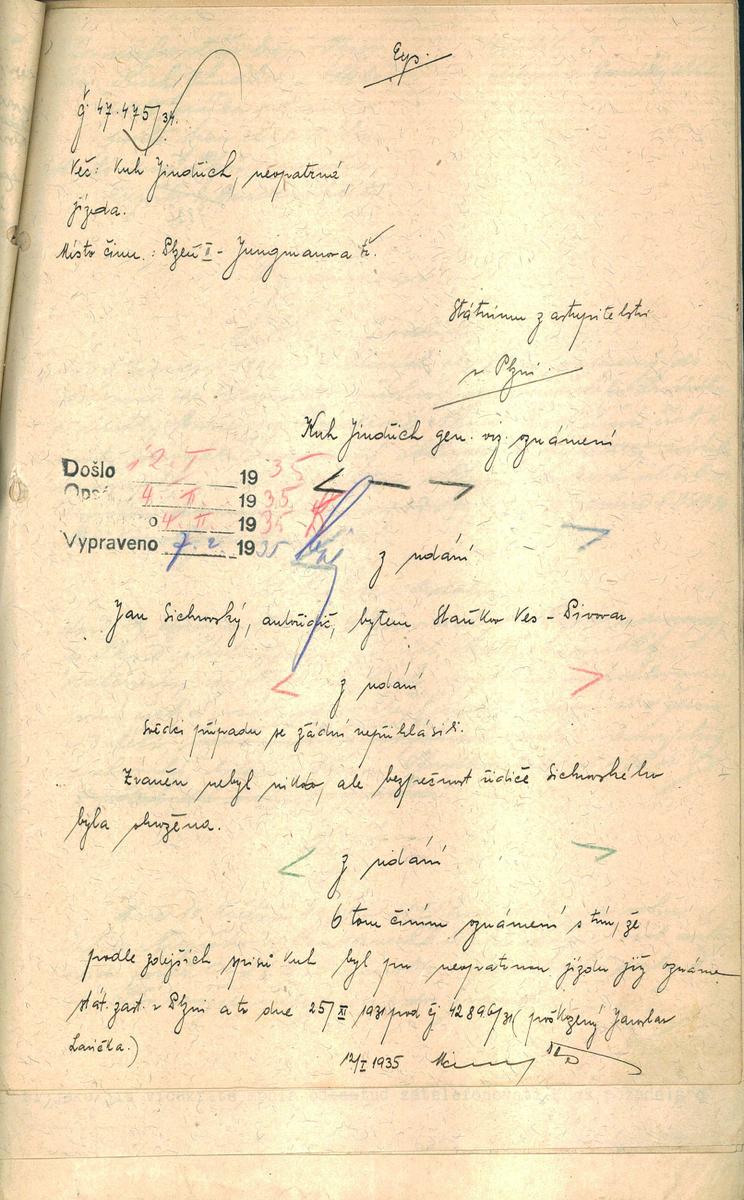 Exp.
Čj 47.475/34.
Věc: Kuh Jindřich, neopatrná
jízda.
Místo činu.: Plzeň II - Jungmanova tř.
Státnímu zastupitelství
v Plzni.
Kuh Jindřich gen. viz. oznámení
Došlo 12. I. 1935
Opsá 4. II. 1935
o 4. II. 1935
Vypraveno 7. 2. 1935
z udání
Jan Sichrovský, autořidič, bytem Staňkov Ves - Pivovar,
z udání
Svědci případu se žádní nepřihlásili.
Zraněn nebyl nikdo, ale bezpečnost řidiče Sichrovského
byla ohrožena.
z udání
O tom činím oznámení s tím, že
podle zdejších spisů Kuh byl pro neopatrnou jízdu již oznáme
stát. zast. v Plzni a to dne 25/XI 1931 pod čj 42896/31 (poškozený Jaroslav
Lavička.)
12/I 1935